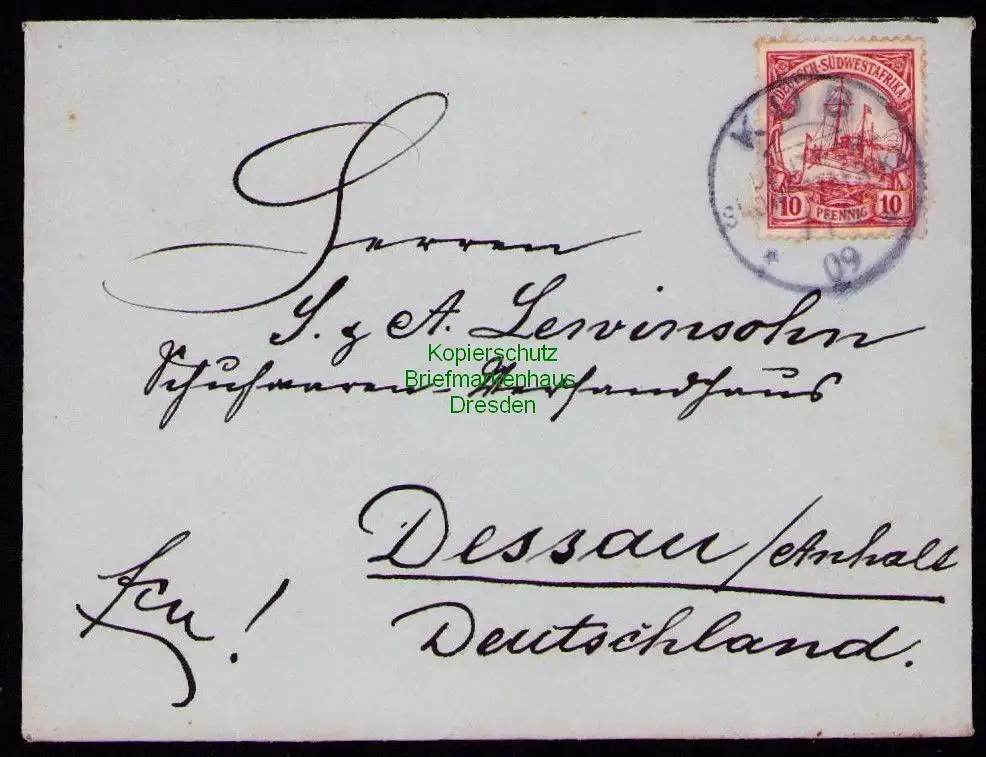 DEUTSCH-SÜDWESTAFRIKA
10 PFENNIG 10
09
Herren
S. & A. Lewinsohn
Schuhwaren-Versandhaus
Kopierschutz
Briefmarkenhaus
Dresden
Dessau / Anhalt
Deutschland.